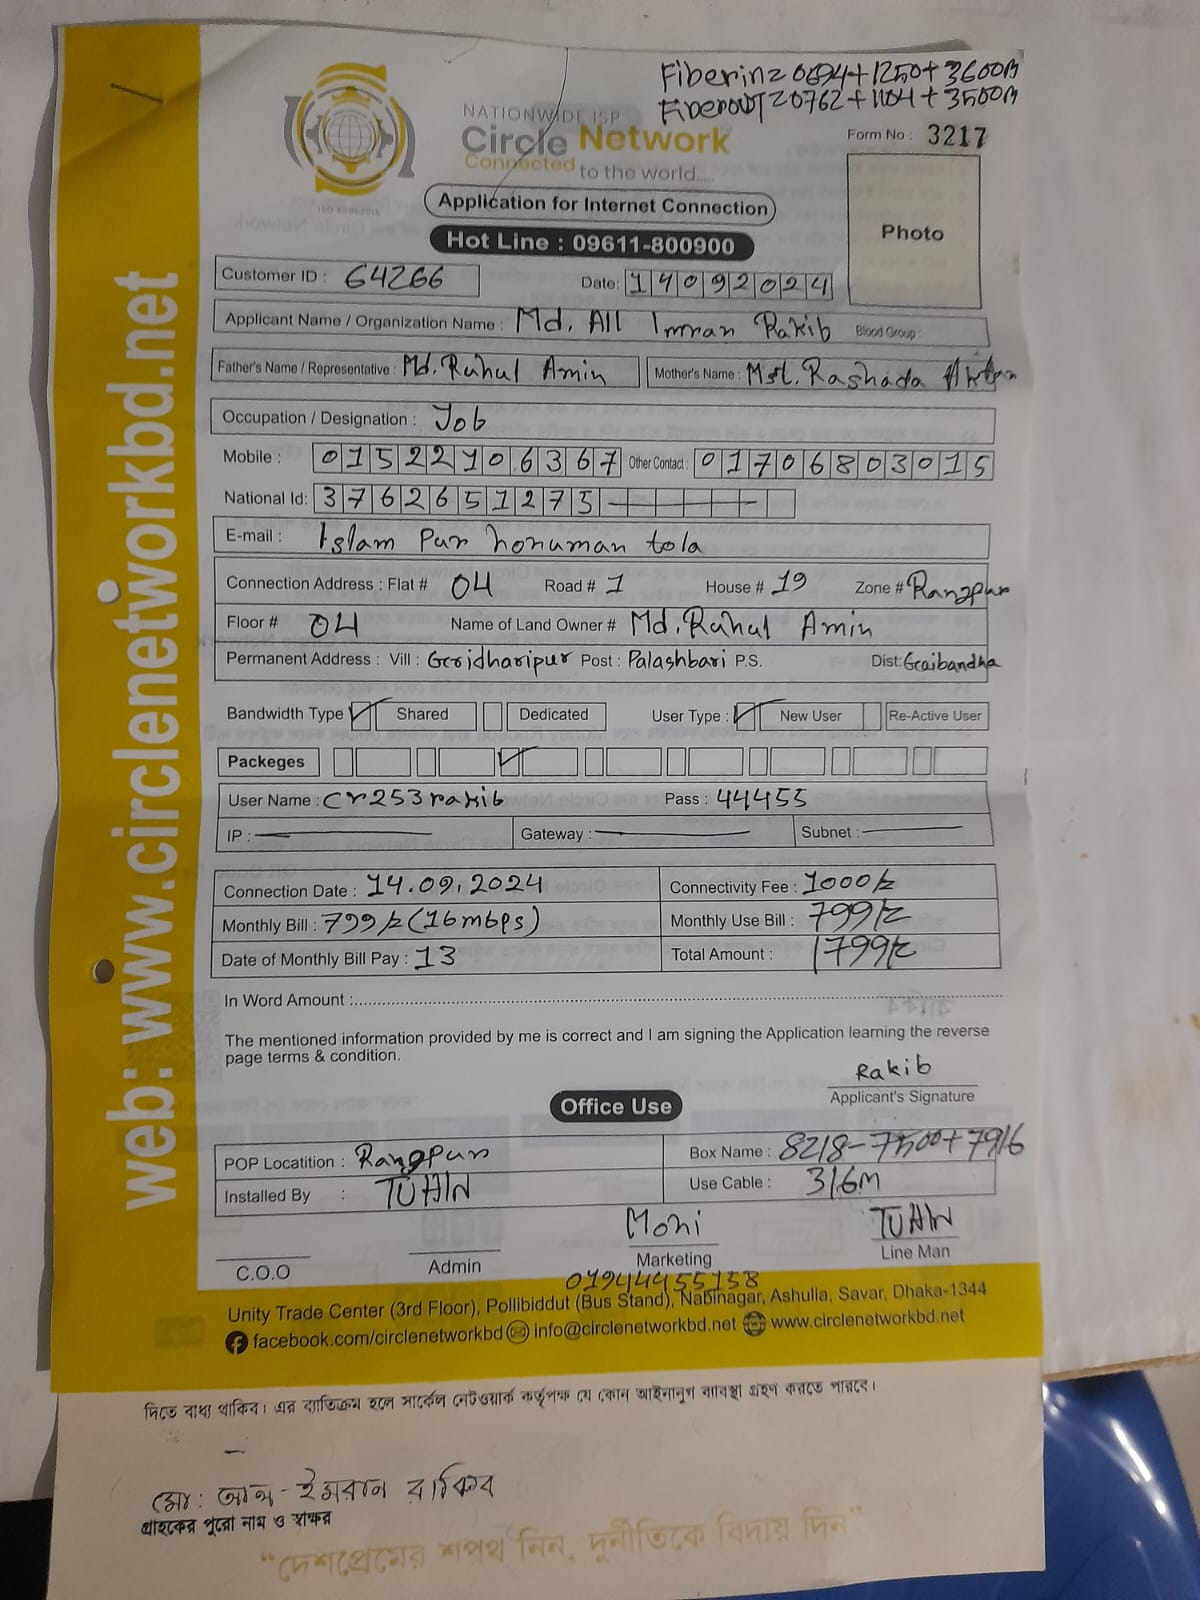 Fiberin=0694+1250+3600m
Fiberout=0762+1104+3500m
NATIONWIDE ISP
Circle Network
Connected to the world.....
Form No : 3217
Application for Internet Connection
Photo
Hot Line : 09611-800900
Customer ID : 64266 Date: 14092024
Applicant Name / Organization Name : Md. All Imran Rakib Blood Group :
Father's Name / Representative : Md. Ruhul Amin Mother's Name : Mst. Rashada
Occupation / Designation : Job
Mobile : 01522106367 Other Contact : 01706803015
National Id: 3762651275
E-mail : Islam Pur honuman tola
Connection Address : Flat # 04 Road # 1 House # 19 Zone # Rangpur
Floor # 04 Name of Land Owner # Md. Ruhul Amin
Permanent Address : Vill : Geridharipur Post : Palashbari P.S. Dist: Gaibandha
Bandwidth Type Shared Dedicated User Type : New User Re-Active User
Packeges
User Name : cr253rakib Pass : 44455
IP : Gateway : Subnet :
Connection Date : 14.09.2024 Connectivity Fee : 1000/=
Monthly Bill : 799/= (16mbps) Monthly Use Bill : 799/=
Date of Monthly Bill Pay : 13 Total Amount : 1799/=
In Word Amount :
The mentioned information provided by me is correct and I am signing the Application learning the reverse
page terms & condition.
Rakib
Applicant's Signature
Office Use
POP Locatition : Rangpur Box Name : 8218-7500+7916
Installed By : TUHIN Use Cable : 316m
Moni TUHIN
C.O.O Admin Marketing Line Man
01944455158
Unity Trade Center (3rd Floor), Pollibiddut (Bus Stand), Nabinagar, Ashulia, Savar, Dhaka-1344
facebook.com/circlenetworkbd info@circlenetworkbd.net www.circlenetworkbd.net
web: www.circlenetworkbd.net
দিতে বাধ্য থাকিব। এর ব্যতিক্রম হলে সার্কেল নেটওয়ার্ক কর্তৃপক্ষ যে কোন আইনানুগ ব্যবস্থা গ্রহণ করতে পারবে।
মো: আল-ইমরান রাকিব
গ্রাহকের পুরো নাম ও স্বাক্ষর
“দেশপ্রেমের শপথ নিন, দুর্নীতিকে বিদায় দিন”